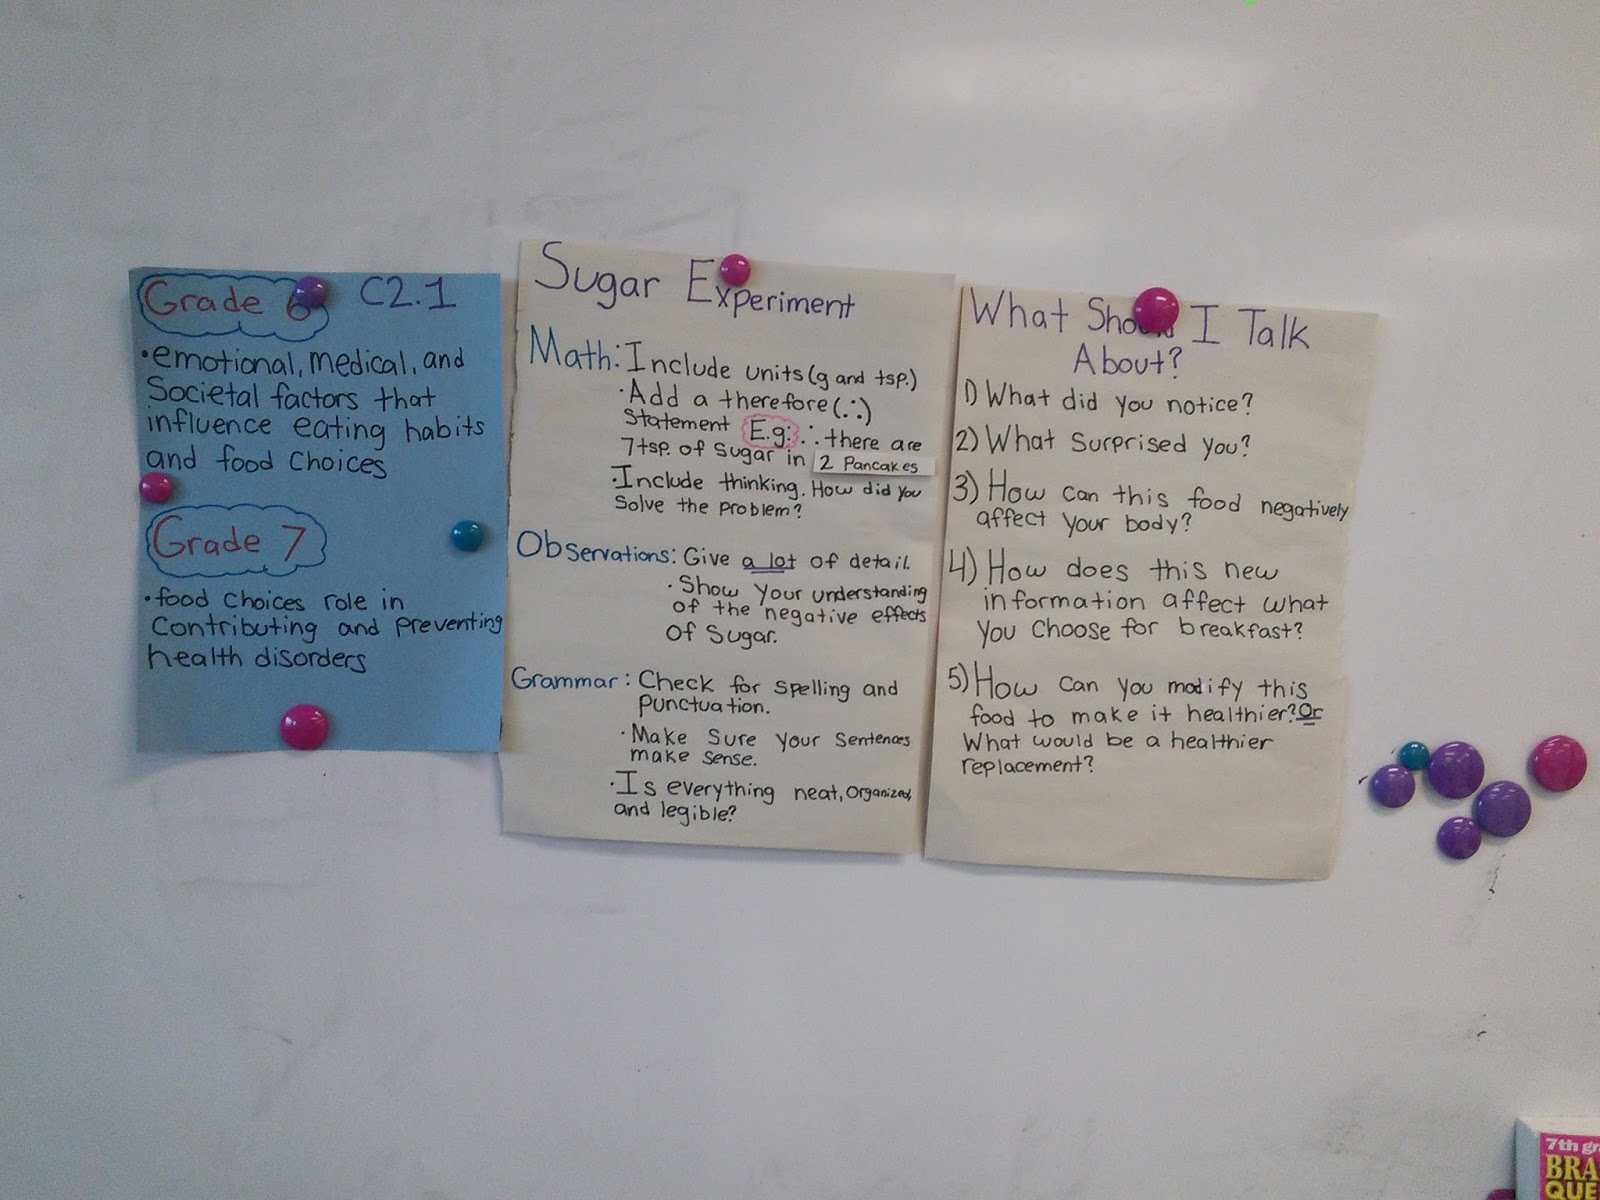 Grade 6 C2.1
•emotional, medical, and
Societal factors that
influence eating habits
and food choices
Grade 7
•food choices role in
Contributing and preventing
health disorders
Sugar Experiment
Math: Include units (g and tsp.)
•Add a therefore (∴)
Statement E.g: ∴ there are
7tsp. of sugar in 2 Pancakes
•Include thinking. How did you
Solve the problem?
Observations: Give a lot of detail.
•Show your understanding
of the negative effects
Of Sugar.
Grammar: Check for spelling and
punctuation.
•Make Sure your sentences
make sense.
•Is everything neat, organized,
and legible?
What Should I Talk
About?
1) What did you notice?
2) What surprised you?
3) How can this food negatively
affect your body?
4) How does this new
information affect what
you choose for breakfast?
5) How can you modify this
food to make it healthier? Or
What would be a healthier
replacement?
7th
BRA
QUE